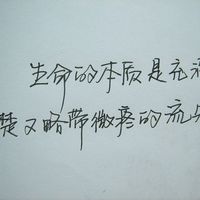 生命的本质是充
楚又略带微疼的流